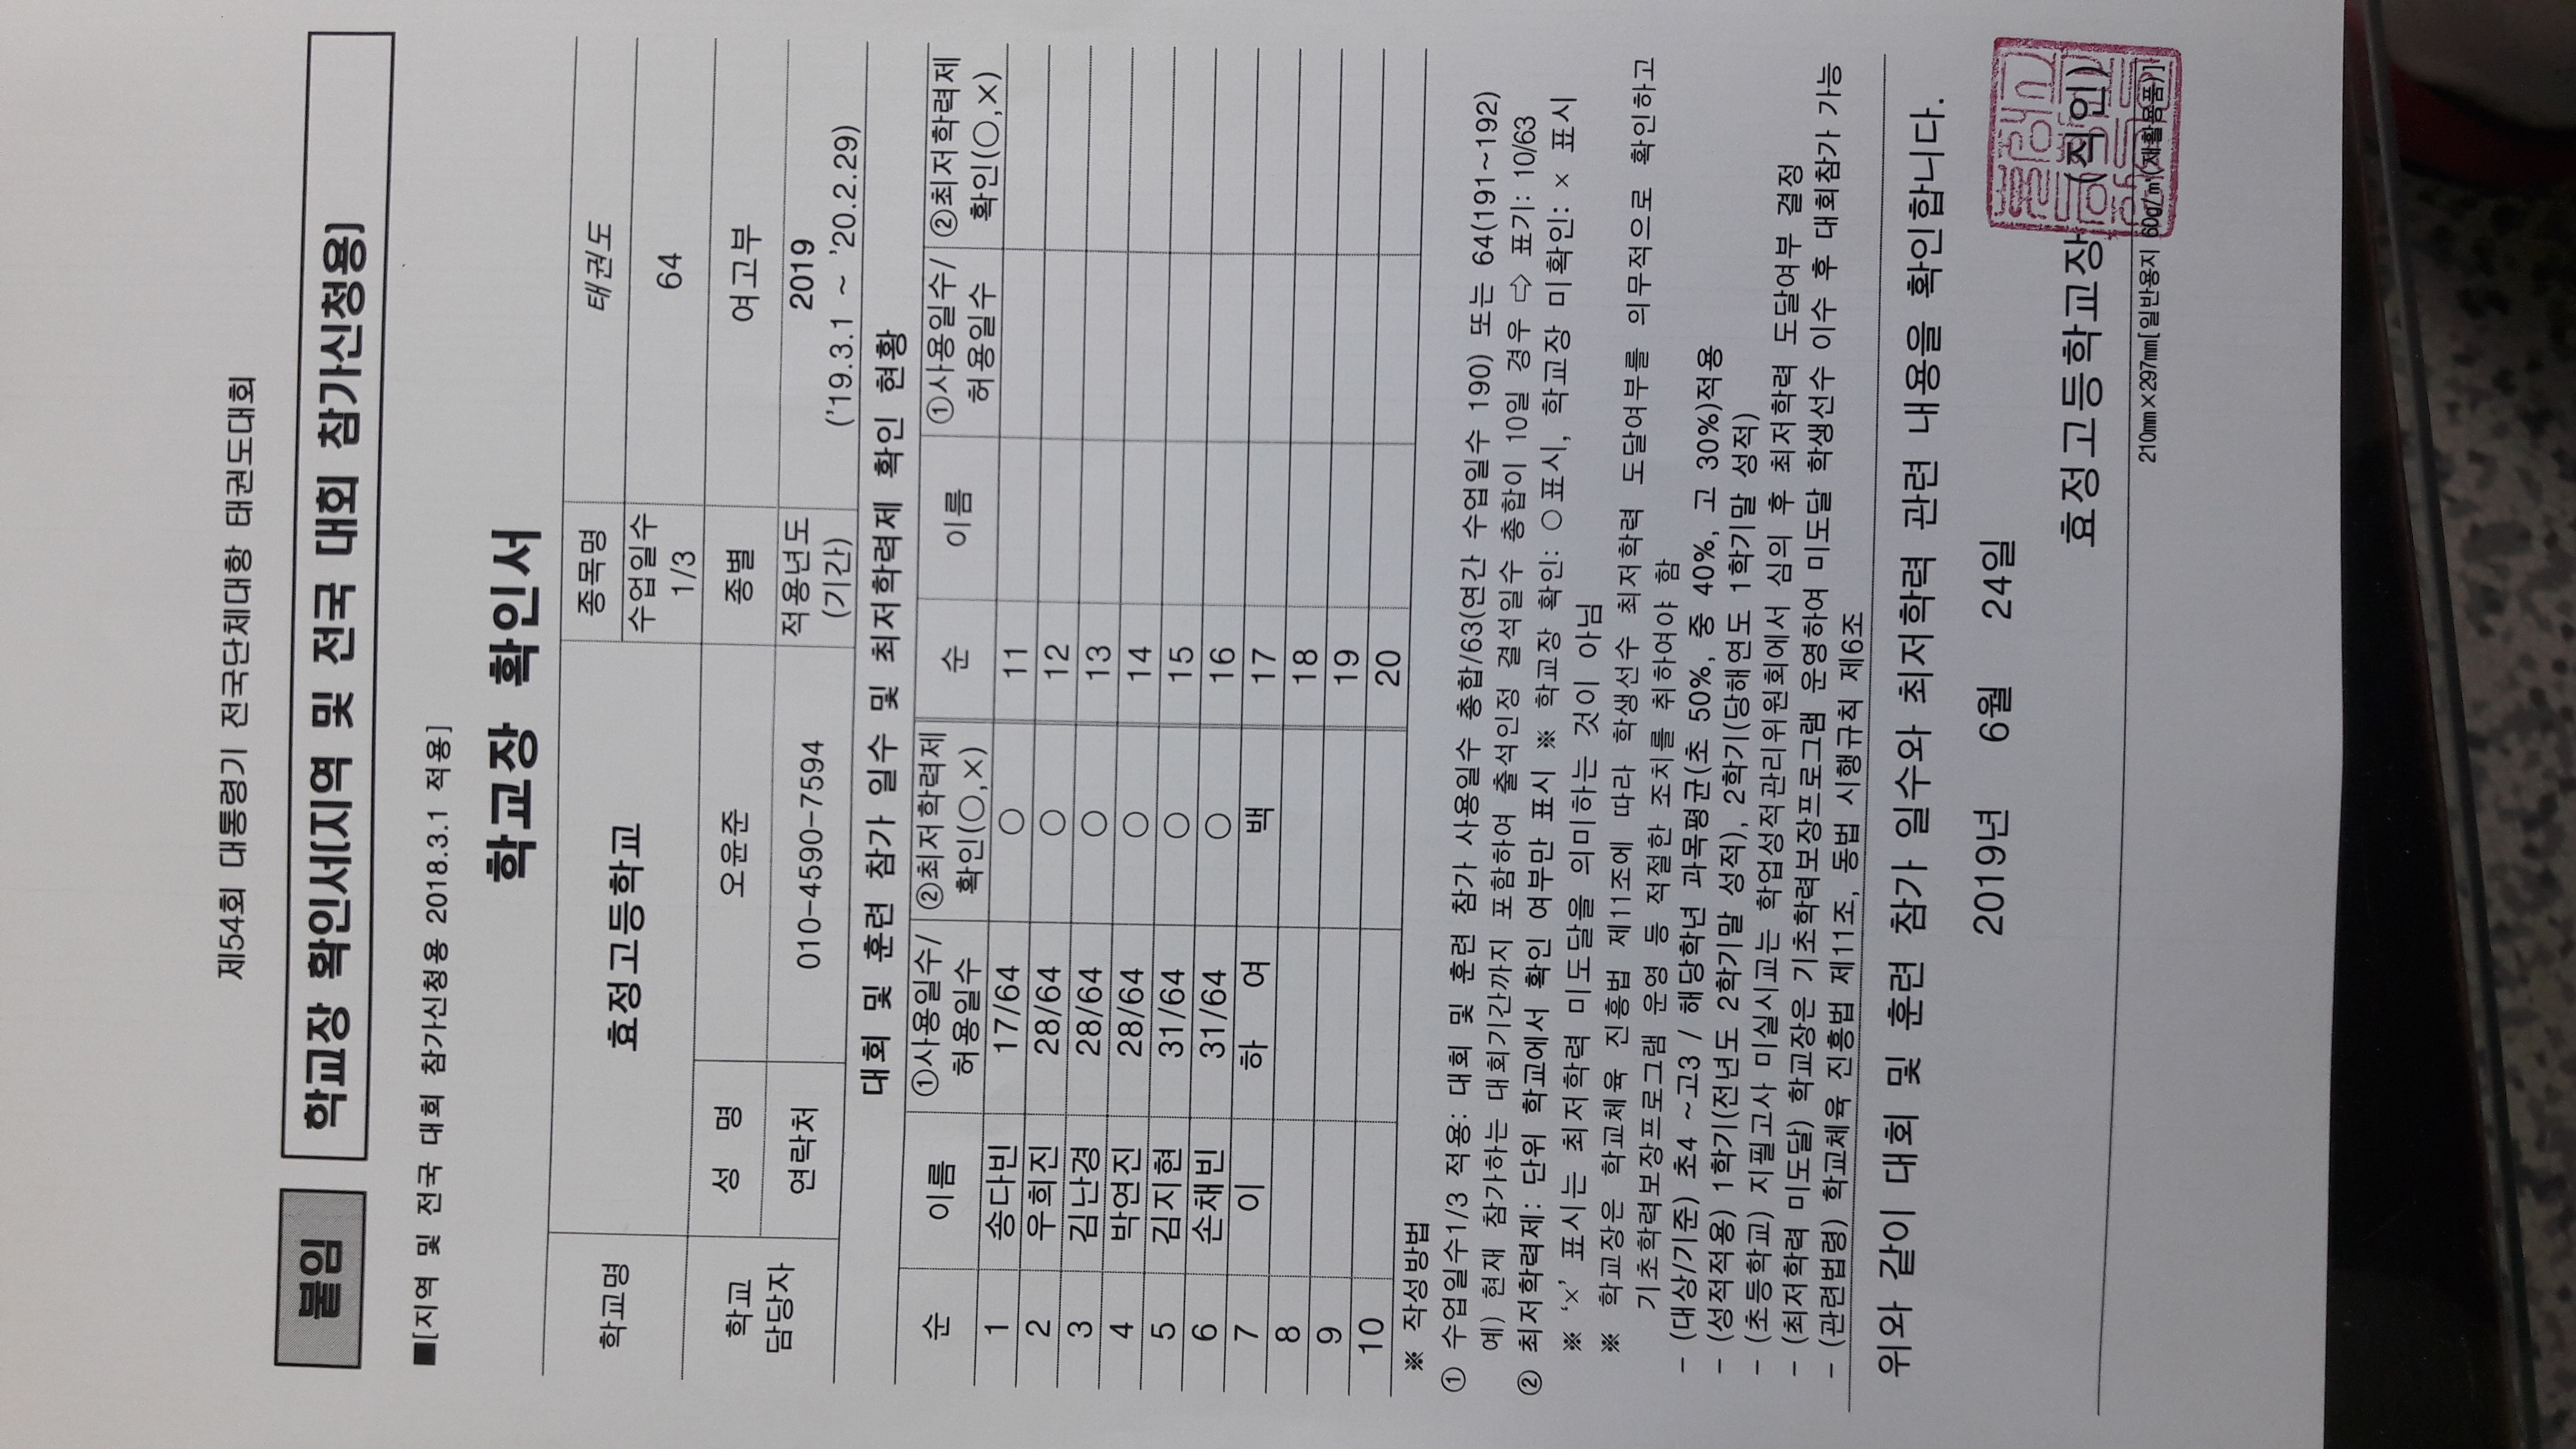 제54회 대통령기 전국단체대항 태권도대회
붙임 학교장 확인서[지역 및 전국 대회 참가신청용]
■[지역 및 전국 대회 참가신청용 2018.3.1 적용]
학교장 확인서
학교명 효정고등학교 종목명 태권도
수업일수 1/3 64
학교 담당자 성 명 오윤준 종별 여고부
연락처 010-4590-7594 적용년도 (기간) 2019 ('19.3.1 ~ '20.2.29)
대회 및 훈련 참가 일수 및 최저학력제 확인 현황
순 이름 ①사용일수/허용일수 ②최저학력제 확인(○,×) 순 이름 ①사용일수/허용일수 ②최저학력제 확인(○,×)
1 송다빈 17/64 ○ 11
2 우희진 28/64 ○ 12
3 김난경 28/64 ○ 13
4 박연진 28/64 ○ 14
5 김지현 31/64 ○ 15
6 손채빈 31/64 ○ 16
7 이 하 여 백 17
8 18
9 19
10 20
※ 작성방법
① 수업일수1/3 적용: 대회 및 훈련 참가 사용일수 총합/63(연간 수업일수 190) 또는 64(191~192)
예) 현재 참가하는 대회기간까지 포함하여 출석인정 결석일수 총합이 10일 경우 ⇨ 표기: 10/63
② 최저학력제: 단위 학교에서 확인 여부만 표시 ※ 학교장 확인: ○ 표시, 학교장 미확인: × 표시
※ '×' 표시는 최저학력 미도달을 의미하는 것이 아님
※ 학교장은 학교체육 진흥법 제11조에 따라 학생선수 최저학력 도달여부를 의무적으로 확인하고
기초학력보장프로그램 운영 등 적절한 조치를 취하여야 함
- (대상/기준) 초4 ~고3 / 해당학년 과목평균(초 50%, 중 40%, 고 30%)적용
- (성적적용) 1학기(전년도 2학기말 성적), 2학기(당해연도 1학기말 성적)
- (초등학교) 지필고사 미실시교는 학업성적관리위원회에서 심의 후 최저학력 도달여부 결정
- (최저학력 미도달) 학교장은 기초학력보장프로그램 운영하여 미도달 학생선수 이수 후 대회참가 가능
- (관련법령) 학교체육 진흥법 제11조, 동법 시행규칙 제6조
위와 같이 대회 및 훈련 참가 일수와 최저학력 관련 내용을 확인합니다.
2019년 6월 24일
효정고등학교장 (직인)
210㎜×297㎜[일반용지 60g/㎡(재활용품)]